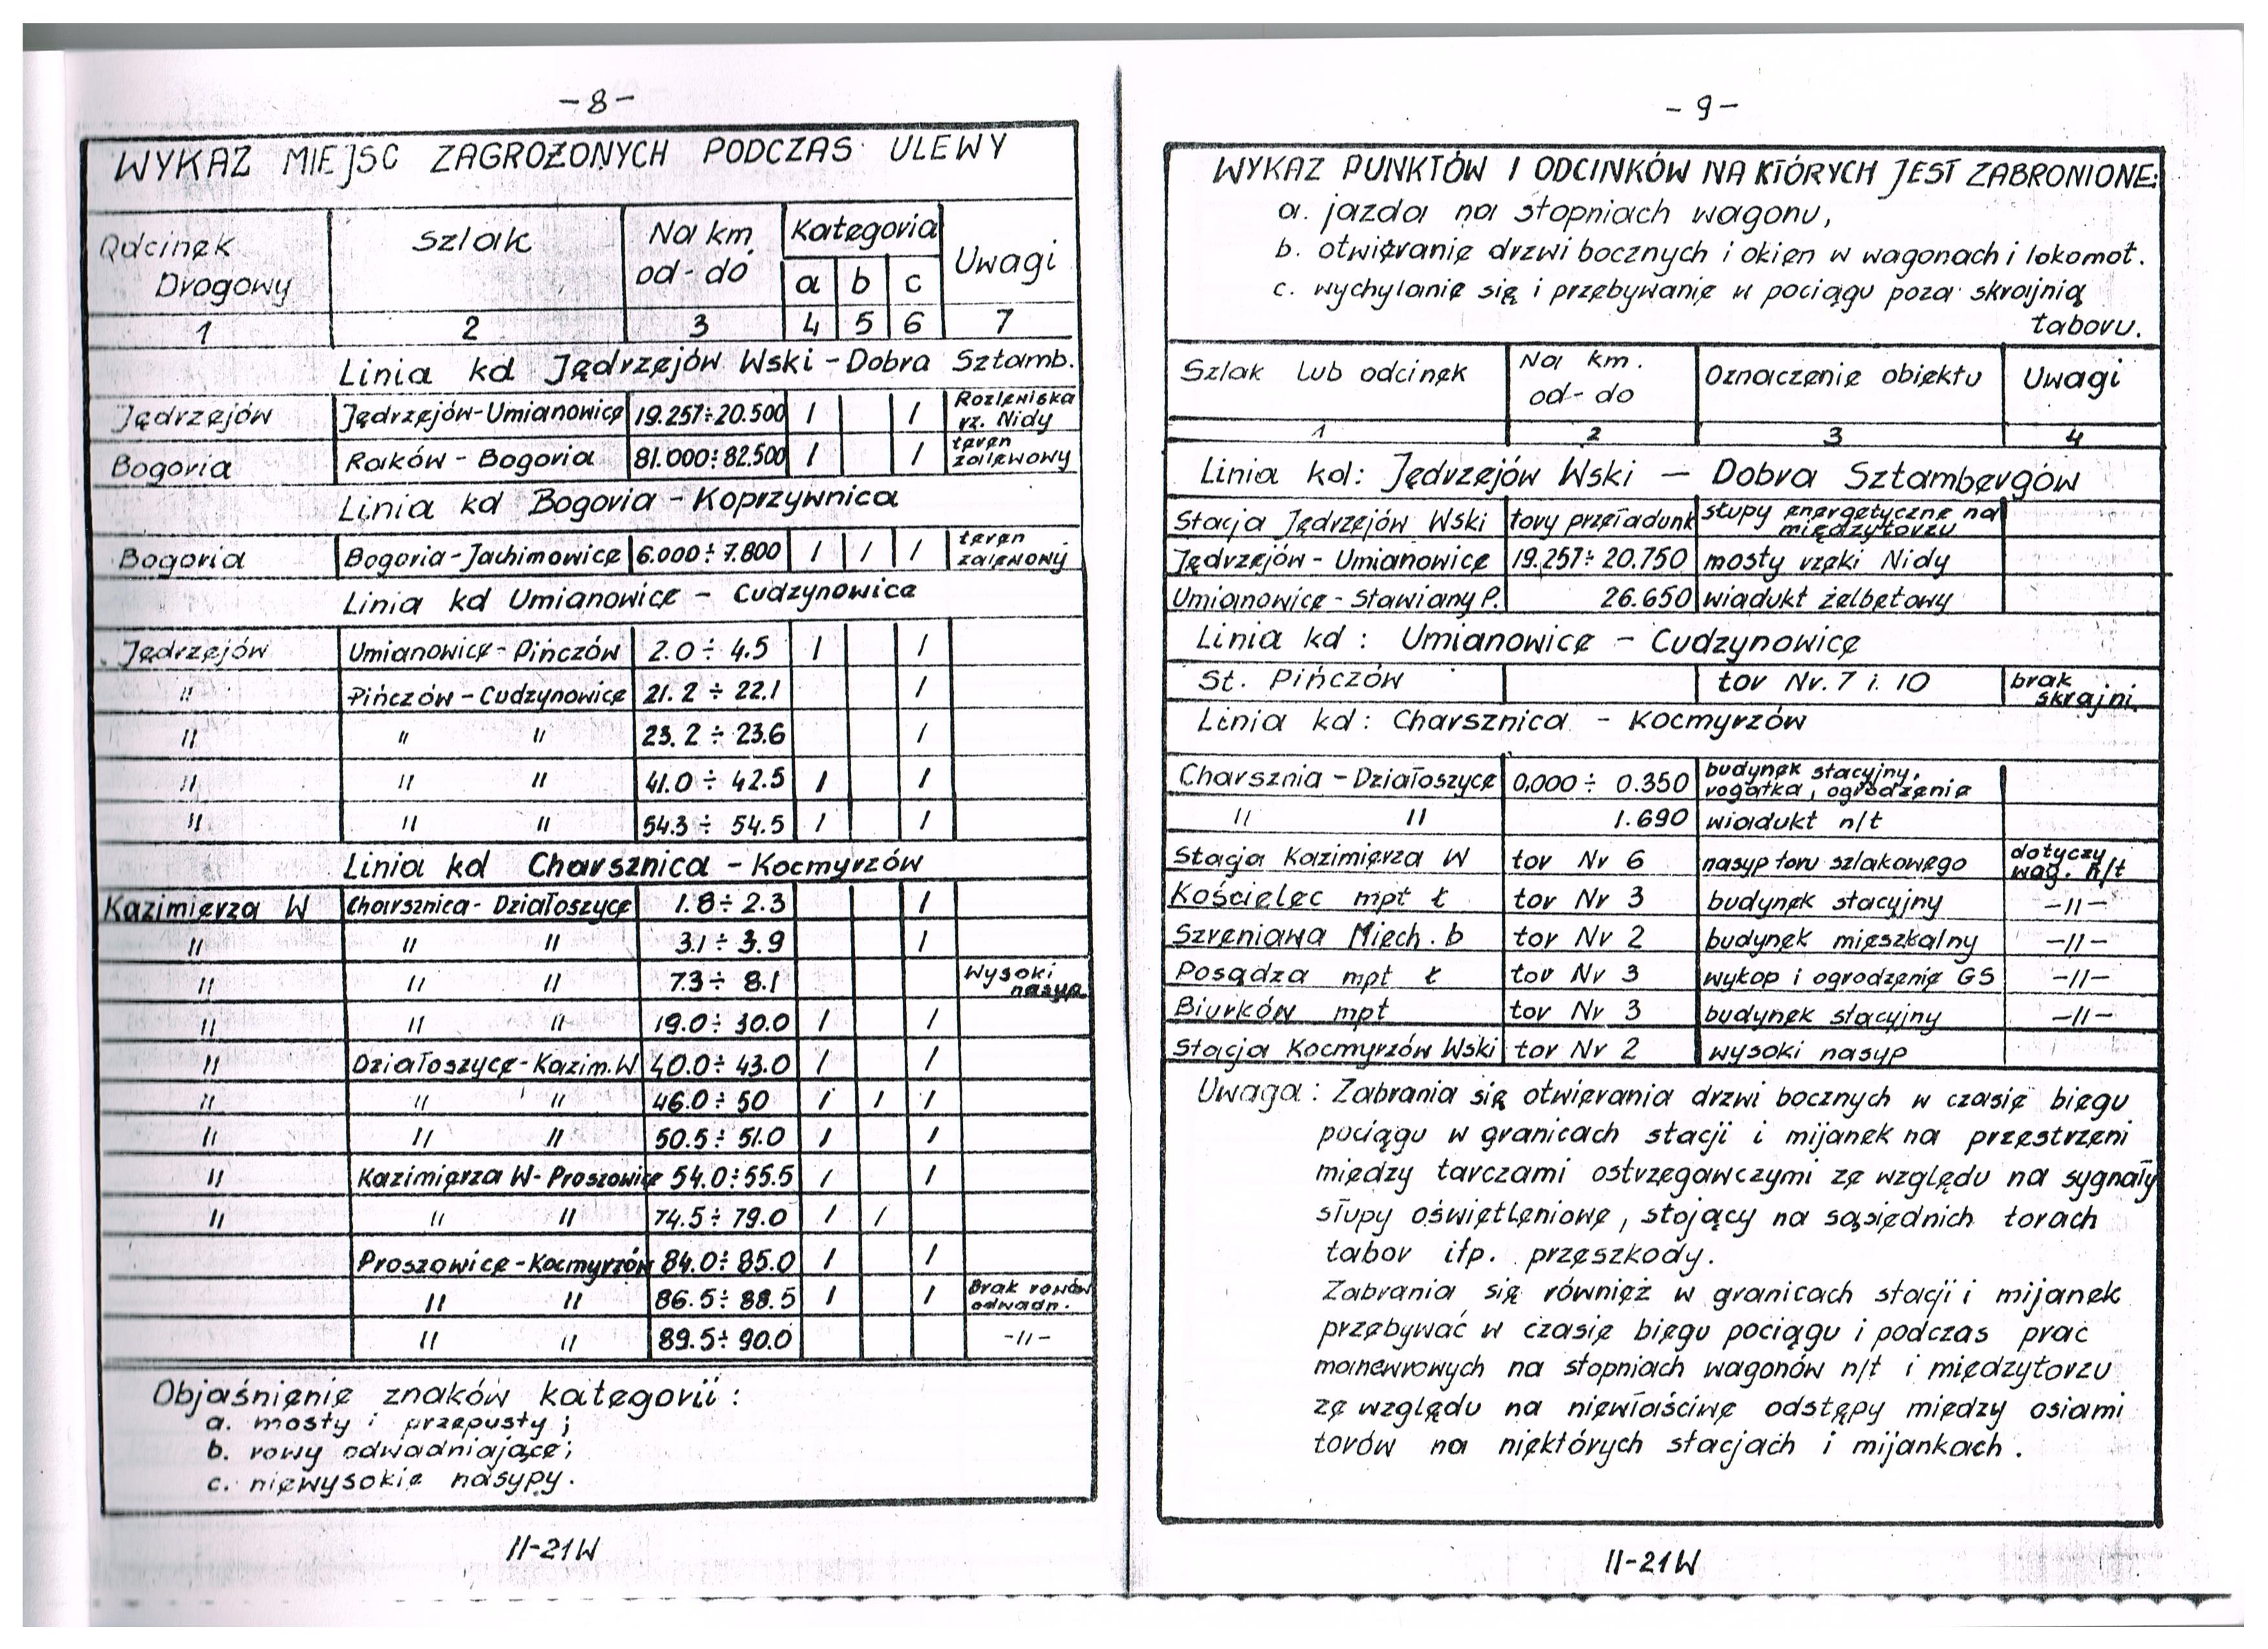 -8-
WYKAZ MIEJSC ZAGROŻONYCH PODCZAS ULEWY
Odcinek Drogowy | Szlak | Na km od-do | Kategoria a b c | Uwagi
1 2 3 4 5 6 7
Linia kd Jędrzejów Wski - Dobra Sztamb.
Jędrzejów Jędrzejów-Umianowice 19.257÷20.500 / / Rozlewiska rz. Nidy
Bogoria Raków - Bogoria 81.000÷82.500 / / teren zalewowy
Linia kd Bogoria - Koprzywnica
Bogoria Bogoria-Jachimowice 6.000÷7.800 / / / teren zalewowy
Linia kd Umianowice - Cudzynowice
Jędrzejów Umianowice-Pińczów 2.0÷4.5 / /
" Pińczów-Cudzynowice 21.2÷22.1 /
" " " 23.2÷23.6 /
" " " 41.0÷42.5 / /
" " " 54.3÷54.5 / /
Linia kd Charsznica - Kocmyrzów
Kazimierza W Charsznica-Działoszyce 1.8÷2.3 /
" " " 3.1÷3.9 /
" " " 7.3÷8.1 Wysoki nasyp
" " " 19.0÷30.0 / /
" Działoszyce-Kazim.W 40.0÷43.0 / /
" " " 46.0÷50 / / /
" " " 50.5÷51.0 / /
" Kazimierza W-Proszowice 54.0÷55.5 / /
" " " 74.5÷79.0 / /
Proszowice-Kocmyrzów 84.0÷85.0 / /
" " 86.5÷88.5 / / Brak rowów odwadn.
" " 89.5÷90.0 -"-
Objaśnienie znaków kategorii:
a. mosty i przepusty;
b. rowy odwadniające;
c. niewysokie nasypy.
II-21W
-9-
WYKAZ PUNKTÓW I ODCINKÓW NA KTÓRYCH JEST ZABRONIONE:
a. jazda na stopniach wagonu,
b. otwieranie drzwi bocznych i okien w wagonach i lokomot.
c. wychylanie się i przebywanie w pociągu poza skrajnią
taboru.
Szlak lub odcinek | Na km. od-do | Oznaczenie obiektu | Uwagi
1 2 3 4
Linia kd: Jędrzejów Wski — Dobra Sztambergów
Stacja Jędrzejów Wski tory przeładunk słupy energetyczne na międzytorzu
Jędrzejów - Umianowice 19.257÷20.750 mosty rzeki Nidy
Umianowice - Stawiany P. 26.650 wiadukt żelbetowy
Linia kd: Umianowice - Cudzynowice
St. Pińczów tor Nr. 7 i 10 brak skrajni.
Linia kd: Charsznica - Kocmyrzów
Charsznia - Działoszyce 0,000÷0.350 budynek stacyjny, rogatka, ogrodzenie
" " 1.690 wiadukt n/t
Stacja Kazimierza W tor Nr 6 nasyp toru szlakowego dotyczy wag. n/t
Kościelec mpt ł tor Nr 3 budynek stacyjny -"-
Szreniawa Miech. b tor Nr 2 budynek mieszkalny -"-
Posądza mpt ł tor Nr 3 wykop i ogrodzenie GS -"-
Biurków mpt tor Nr 3 budynek stacyjny -"-
Stacja Kocmyrzów Wski tor Nr 2 wysoki nasyp
Uwaga: Zabrania się otwierania drzwi bocznych w czasie biegu
pociągu w granicach stacji i mijanek na przestrzeni
między tarczami ostrzegawczymi ze względu na sygnały
słupy oświetleniowe, stojący na sąsiednich torach
tabor itp. przeszkody.
Zabrania się również w granicach stacji i mijanek
przebywać w czasie biegu pociągu i podczas prac
manewrowych na stopniach wagonów n/t i międzytorzu
ze względu na niewłaściwe odstępy między osiami
torów na niektórych stacjach i mijankach.
II-21W